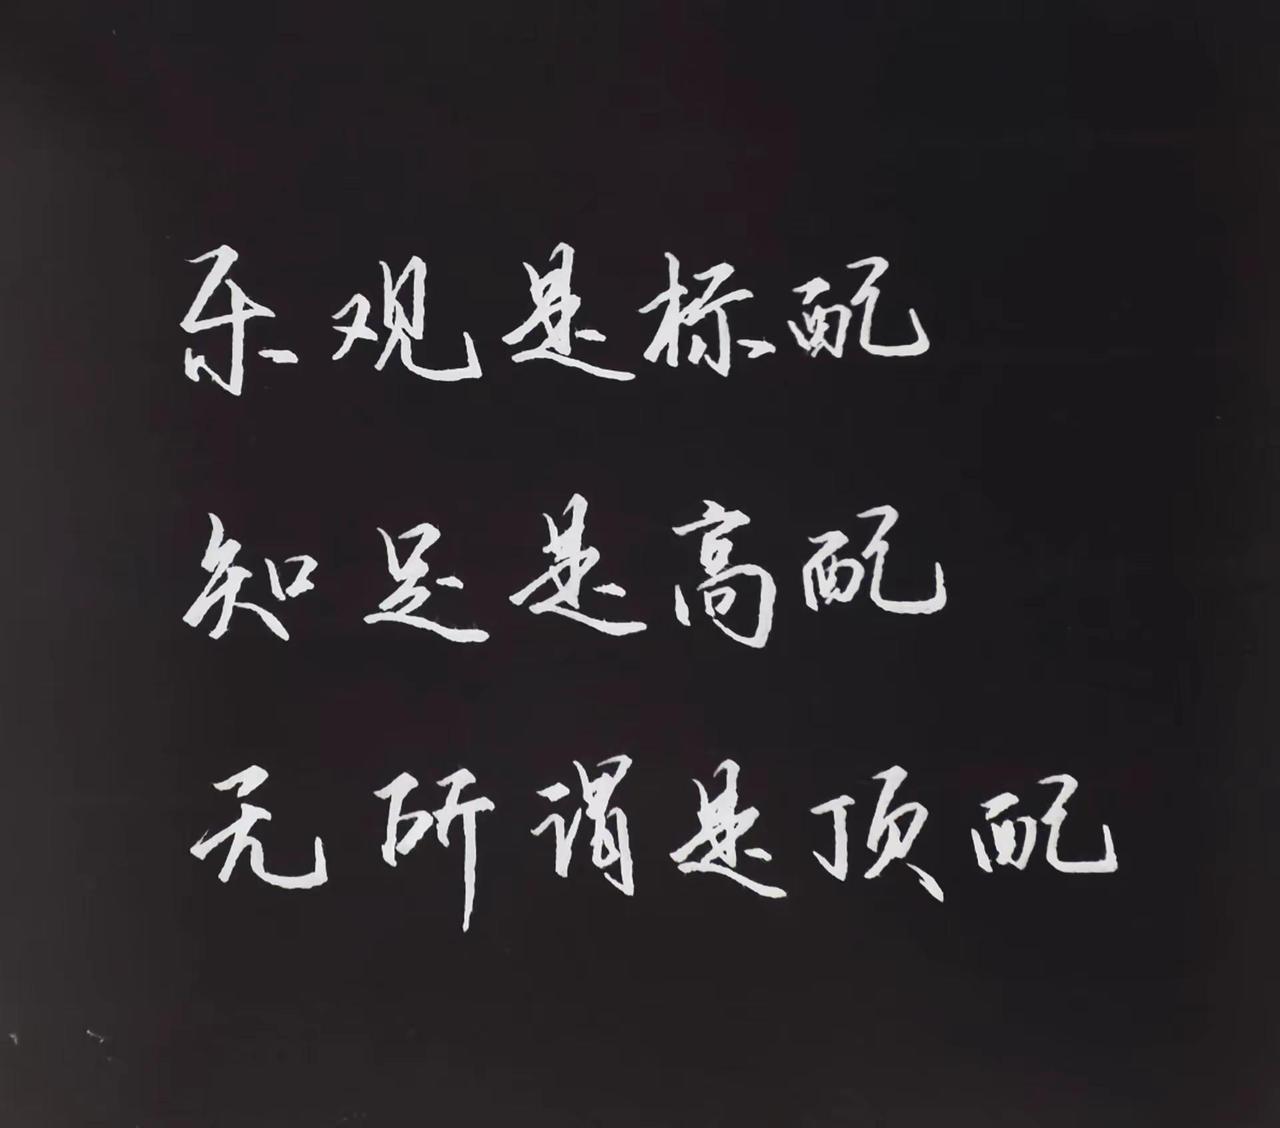 乐观是标配
知足是高配
无所谓是顶配